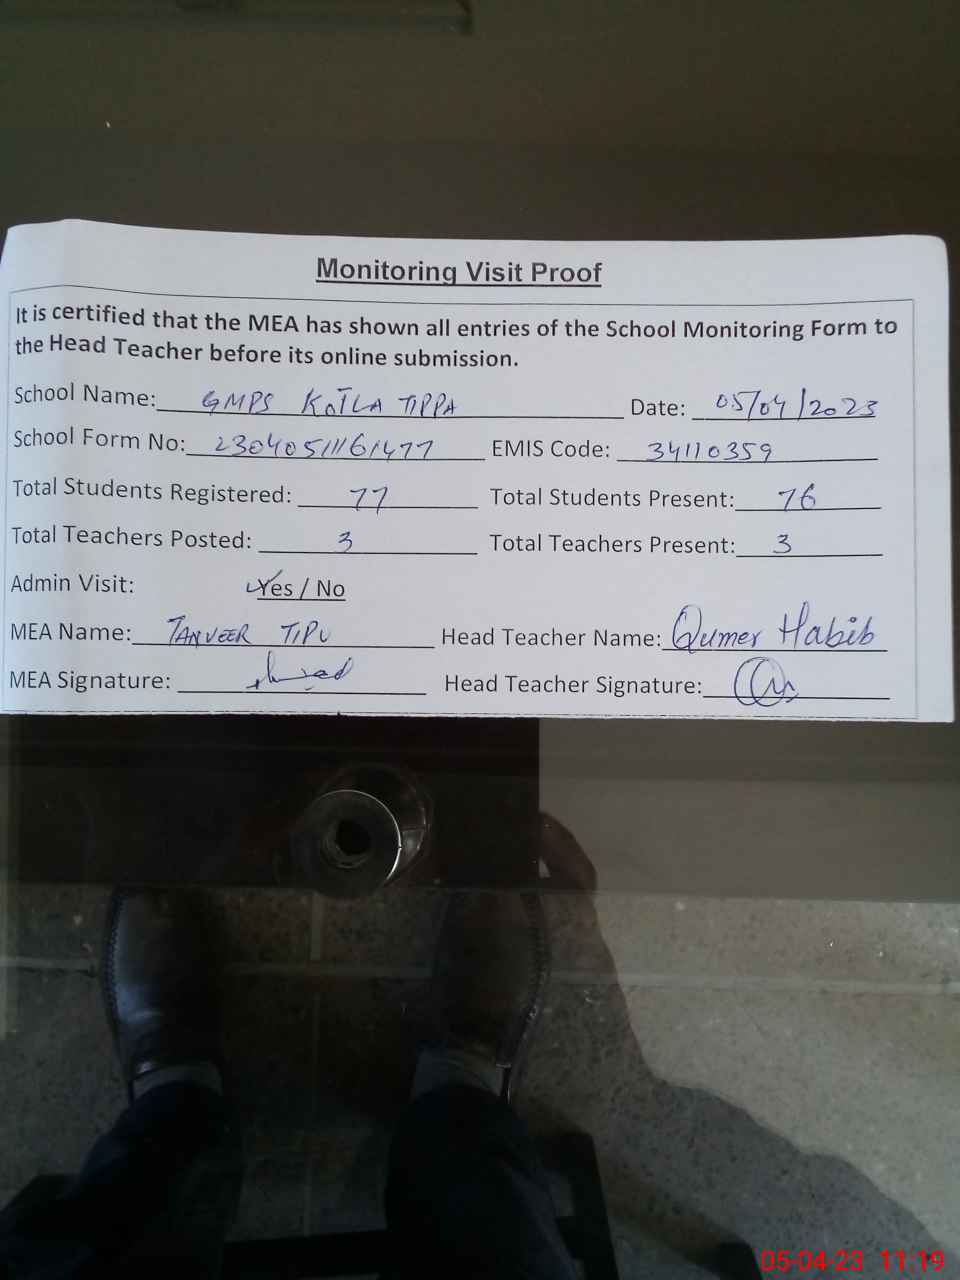 Monitoring Visit Proof
It is certified that the MEA has shown all entries of the School Monitoring Form to
the Head Teacher before its online submission.
School Name: GMPS KOTLA TIPPA Date: 05/04/2023
School Form No: 23040511161477 EMIS Code: 34110359
Total Students Registered: 77 Total Students Present: 76
Total Teachers Posted: 3 Total Teachers Present: 3
Admin Visit: Yes / No
MEA Name: TANVEER TIPU Head Teacher Name: Qumer Habib
MEA Signature: Head Teacher Signature:
05-04-23 11:19